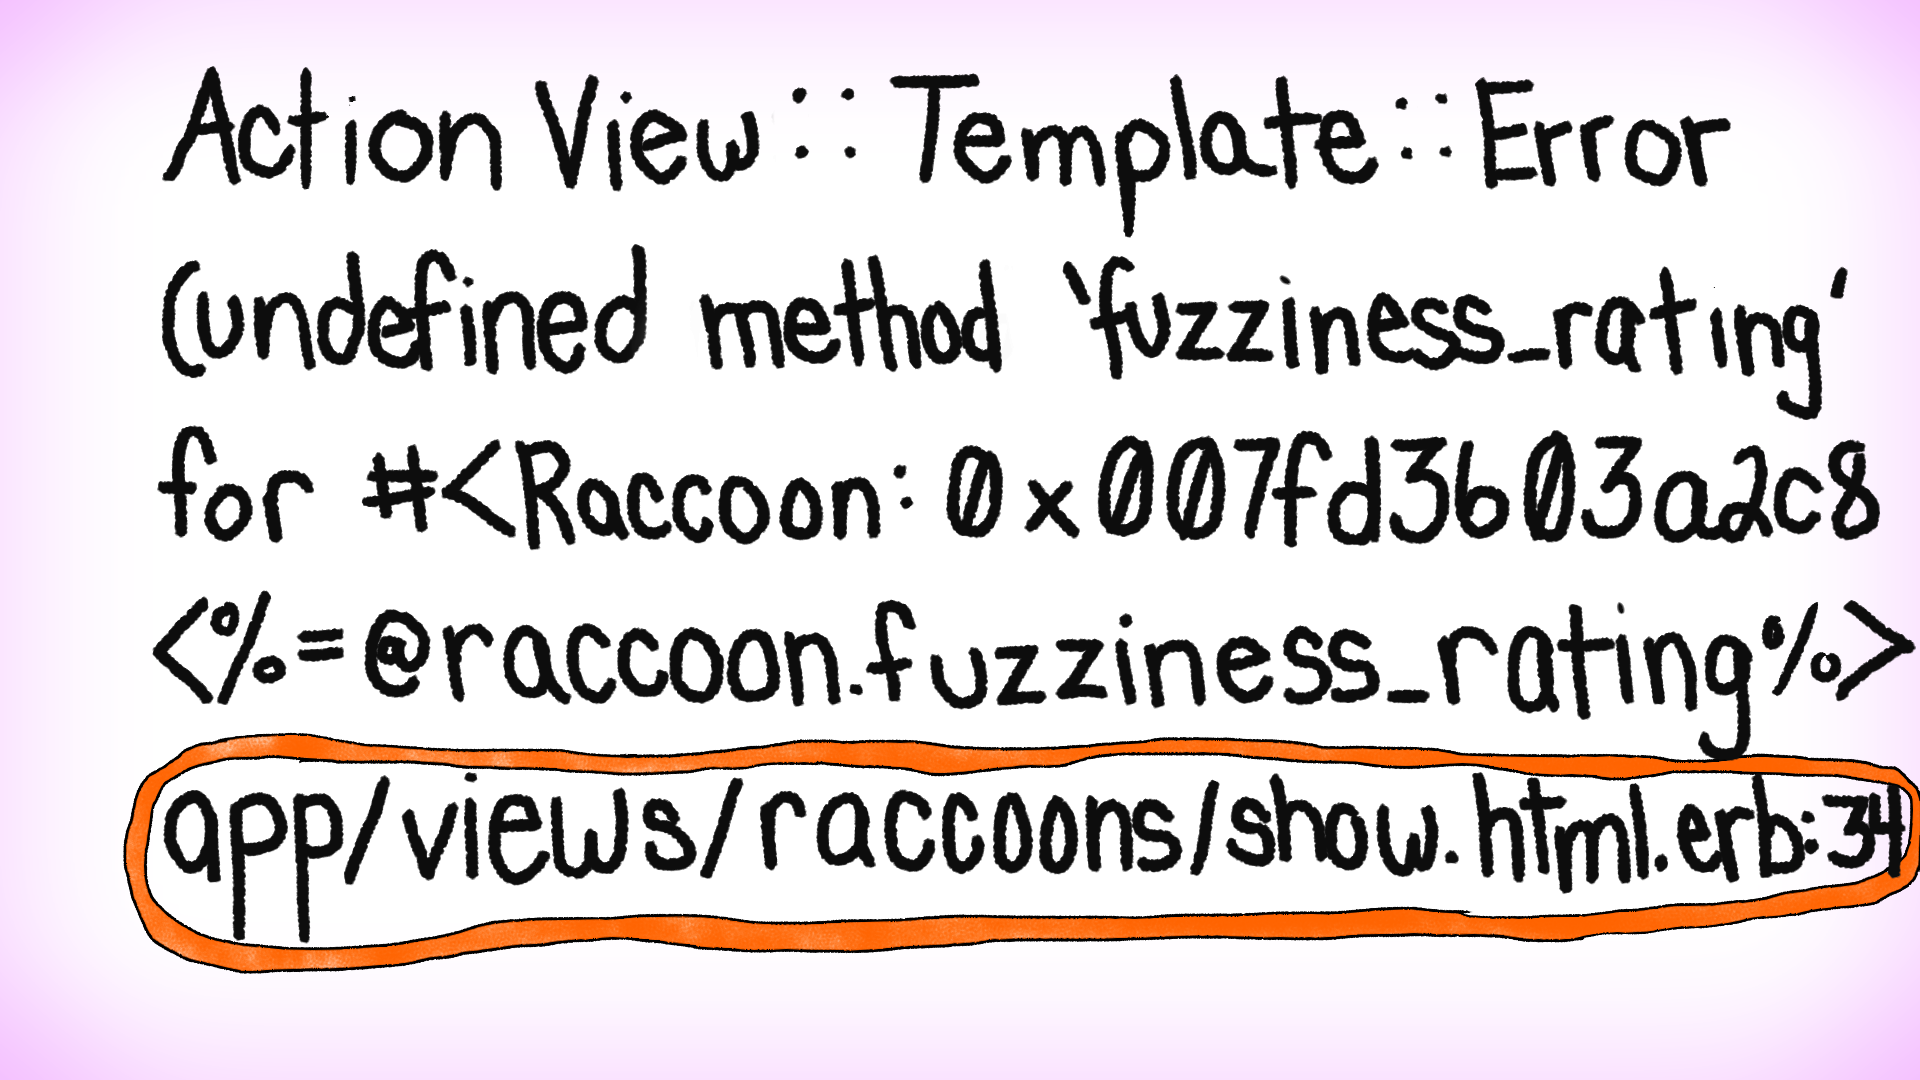 Action View::Template::Error
(undefined method `fuzziness_rating'
for #<Raccoon:0x007fd3b03a2c8
<%=@raccoon.fuzziness_rating%>
app/views/raccoons/show.html.erb:34